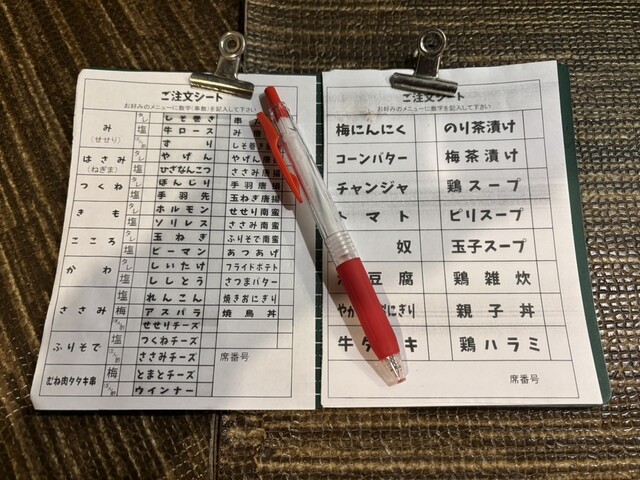 ご注文シート
お好みのメニューに数字(串数)を記入して下さい
み
(せせり)
タレ
塩
はさみ
(ねぎま)
タレ
塩
つくね
タレ
塩
きも
タレ
塩
こころ
タレ
塩
かわ
タレ
塩
ささみ
塩
梅
わさび
ふりそで
塩
むね肉タタキ串
梅
しそ巻き
牛ロース
すり
やげん
ひざなんこつ
ぼんじり
手羽先
ホルモン
ソリレス
玉ねぎ
ピーマン
しいたけ
ししとう
れんこん
アスパラ
せせりチーズ
つくねチーズ
ささみチーズ
とまとチーズ
ウインナー
串
み
しそ巻き
やげん唐揚
ささみ唐揚
手羽唐揚
玉ねぎ唐揚
せせり南蛮
ささみ南蛮
ふりそで南蛮
あつあげ
フライドポテト
さつまバター
焼きおにぎり
焼鳥丼
席番号
ご注文シート
お好みのメニューに数字を記入して下さい
梅にんにく
のり茶漬け
コーンバター
梅茶漬け
チャンジャ
鶏スープ
トマト
ピリスープ
奴
玉子スープ
豆腐
鶏雑炊
おにぎり
親子丼
牛タ キ
鶏ハラミ
席番号